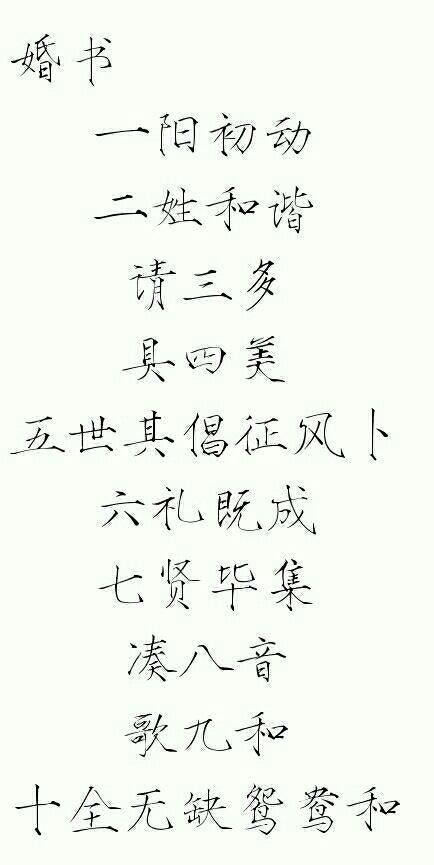 婚书
一阳初动
二姓和谐
请三多
具四美
五世其倡征风卜
六礼既成
七贤毕集
凑八音
歌九和
十全无缺鸳鸯和